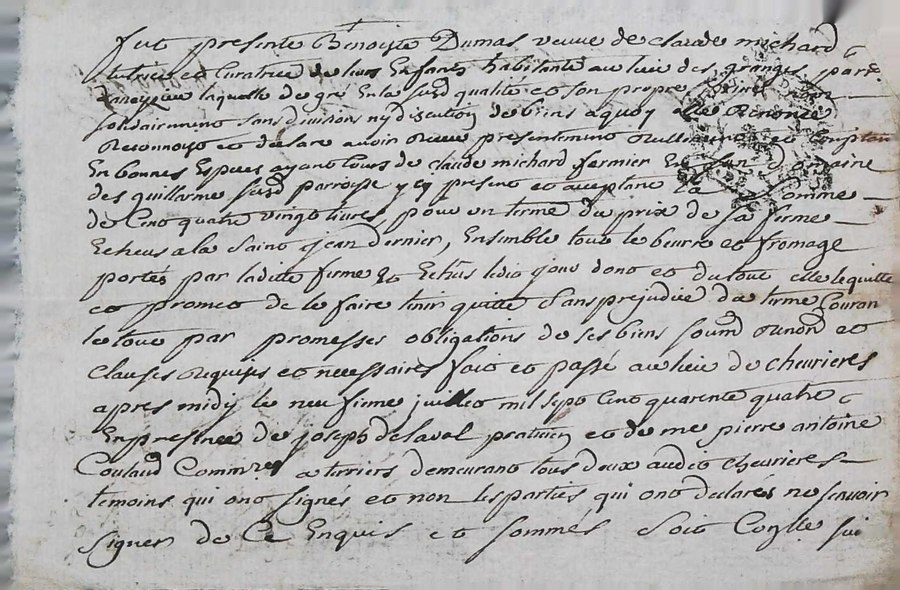 fut presente Benoiste Dumas veuve de claude michard
tutrice et Curatrice de leurs Enfans habitante au lieu des granges parr
laquelle de gré En la susd qualité et son propre
solidairement sans division ny discution de biens a quoy elle Renonce
Reconnoyt et declare avoir Receu presentement Reellement et comptan
En bonnes Especes ayant cours de claude michard fermier En un domaine
des guillarme susd parroisse y cy present et aceptant La somme
de Cinq quatre vingt livres pour un terme du prix de sa ferme
Echeus a la Saint jean dernier, Ensemble tout le beurre et fromage
portés par ladite ferme Et Echus ledit jour dont et du tout elle le quitte
et promet de le faire tenir quitte Sans prejudice du terme Couran
le tout par promesses obligations de ses biens soumd Renond et
Clauses Requises et necessaires fait et passé au lieu de cheurieres
apres midy le neufieme juillet mil sept Cinq quarente quatre
En presence de joseph delaval praticien et de me pierre antoine
Coulaud Commre a terriers demeurant tous deux audit cheurieres
temoins qui ont signés et non les parties qui ont declarés ne scavoir
signer de Ce Enquis et sommés soit Conlle sui